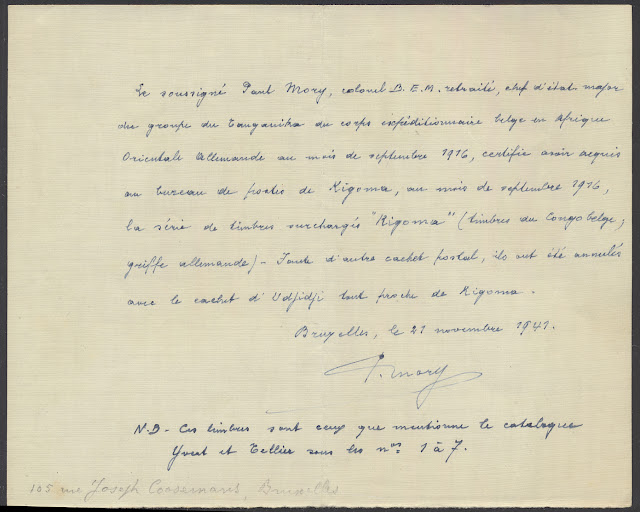 Le soussigné Paul Mory, colonel B.E.M. retraité, chef d'état major
du groupe du Tanganika du corps expéditionnaire belge en Afrique
Orientale Allemande au mois de septembre 1916, certifie avoir acquis
au bureau de postes de Kigoma, au mois de septembre 1916,
la série de timbres surchargés "Kigoma" (timbres du Congo belge;
griffe allemande) - Faute d'autre cachet postal, ils ont été annulés
avec le cachet d'Udjidji tout proche de Kigoma.
Bruxelles, le 21 novembre 1941.
P. Mory
N.B - Ces timbres sont ceux que mentionne le catalogue
Yvert et Tellier sous les nos: 1 à 7.
105 rue Joseph Coosemans, Bruxelles